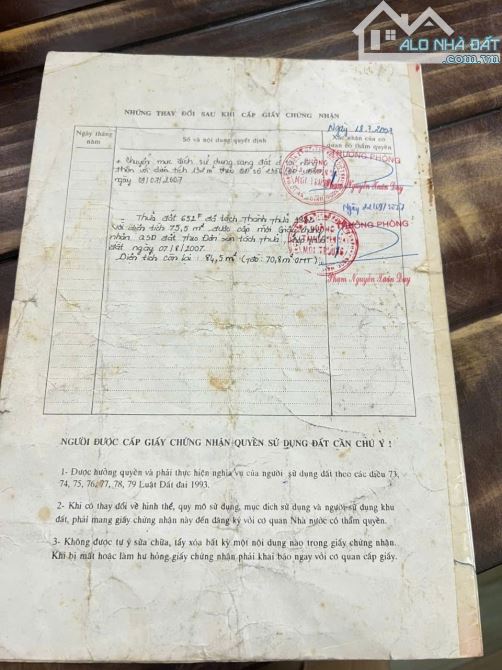 ALO NHÀ ĐẤT
.com.vn
NHỮNG THAY ĐỔI SAU KHI CẤP GIẤY CHỨNG NHẬN
Ngày tháng năm
Số và nội dung quyết định
Xác nhận của cơ quan có thẩm quyền
Ngày 18.7.2007
+ Chuyển mục đích sử dụng sang đất ở tại nông
thôn với diện tích theo số
ngày 9/07/2007
TRƯỞNG PHÒNG
MÔI TRƯỜNG
Phạm Nguyễn Xuân Duy
Ngày
Thửa đất 652 đã tách thành thửa
với diện tích 75,5 m² được cấp mới giấy chứng
nhận QSD đất theo Đơn xin tách thửa
đất ngày 07/8/2007.
Diện tích còn lại : 84,5 m² (70,8 m² ONT)
TRƯỞNG PHÒNG
MÔI TRƯỜNG
Phạm Nguyễn Xuân Duy
NGƯỜI ĐƯỢC CẤP GIẤY CHỨNG NHẬN QUYỀN SỬ DỤNG ĐẤT CẦN CHÚ Ý !
1- Được hưởng quyền và phải thực hiện nghĩa vụ của người sử dụng đất theo các điều 73,
74, 75, 76, 77, 78, 79 Luật Đất đai 1993.
2- Khi có thay đổi về hình thể, quy mô sử dụng, mục đích sử dụng và người sử dụng khu
đất, phải mang giấy chứng nhận này đến đăng ký với cơ quan Nhà nước có thẩm quyền.
3- Không được tự ý sửa chữa, tẩy xóa bất kỳ một nội dung nào trong giấy chứng nhận.
Khi bị mất hoặc làm hư hỏng giấy chứng nhận phải khai báo ngay với cơ quan cấp giấy.